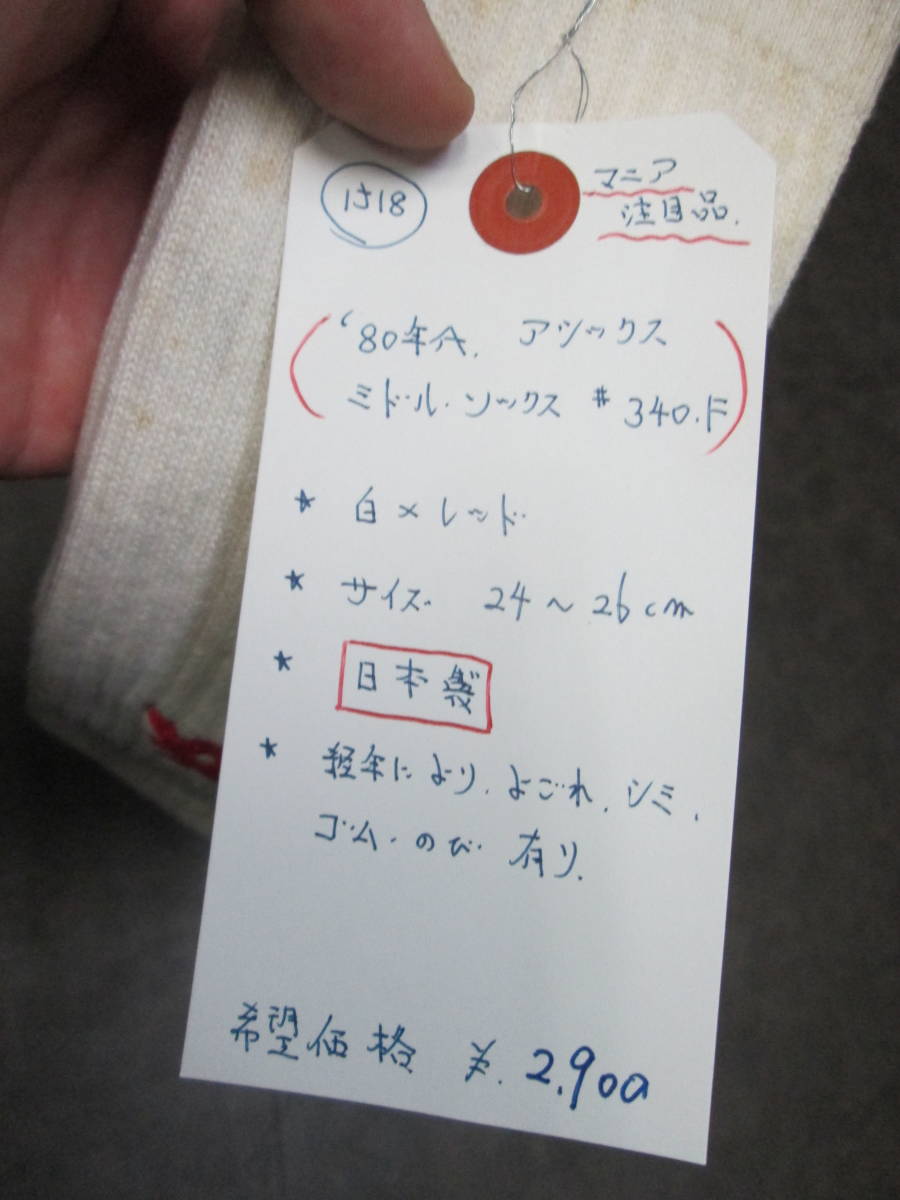 け18
マニア
注目品.
'80年代. アシックス
ミドル.ソックス #340.F
* 白×レッド
* サイズ. 24~26cm
* 日本製
* 経年により. よごれ. シミ.
ゴム.のび 有り.
希望価格 ¥.2.900